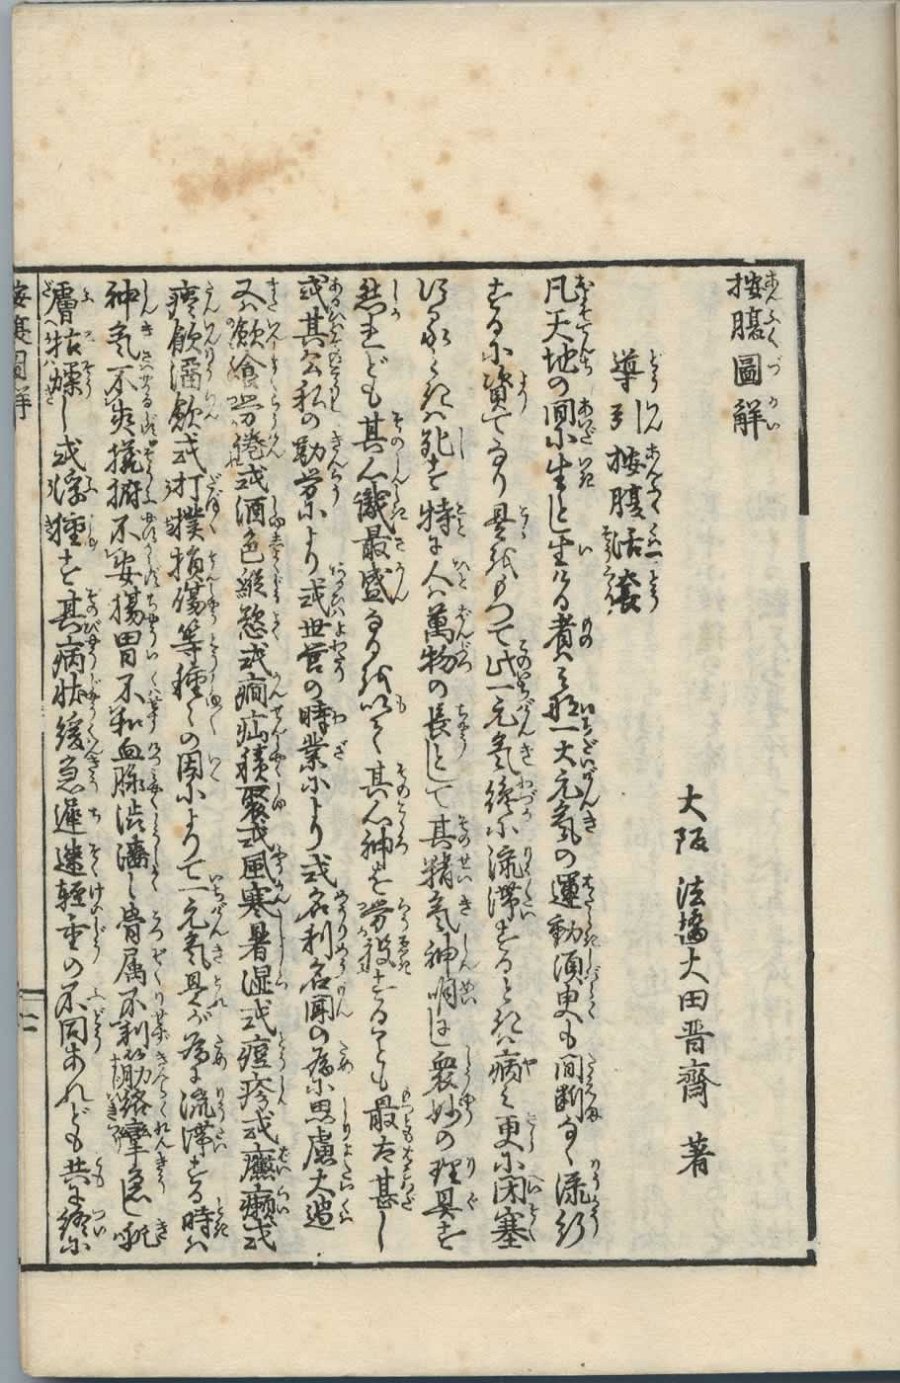 按腹圖解
大阪 法橋大田晋齋 著
導引按腹活套
凡天地の間に生としいける者みな一大元氣の運動須臾も間断なく流行
するに資てなり是をもつて此一元氣纔に流滞するときは病み更に閉塞
ときは死す特に人は萬物の長として其精氣神明に衆妙の理具す
然れども其人識最盛なるを以て其心神を労役することも最太甚し
或其公私の勤労により或世営の時業により或名利名聞の為に思慮大過
又は飲食労倦或酒色縦慾或癇疝積聚或風寒暑湿或痘疹或黴癩或
痰飲溜飲或打撲損傷等種々の因によりて一元氣是が為に流滞する時は
神氣不爽 腑不安腸胃不和血脉渋濇し骨属不利筋絡攣急し
膚枯燥し或浮腫す其病状緩急遲速軽重の不同あれども共に終に
按腹圖解
二